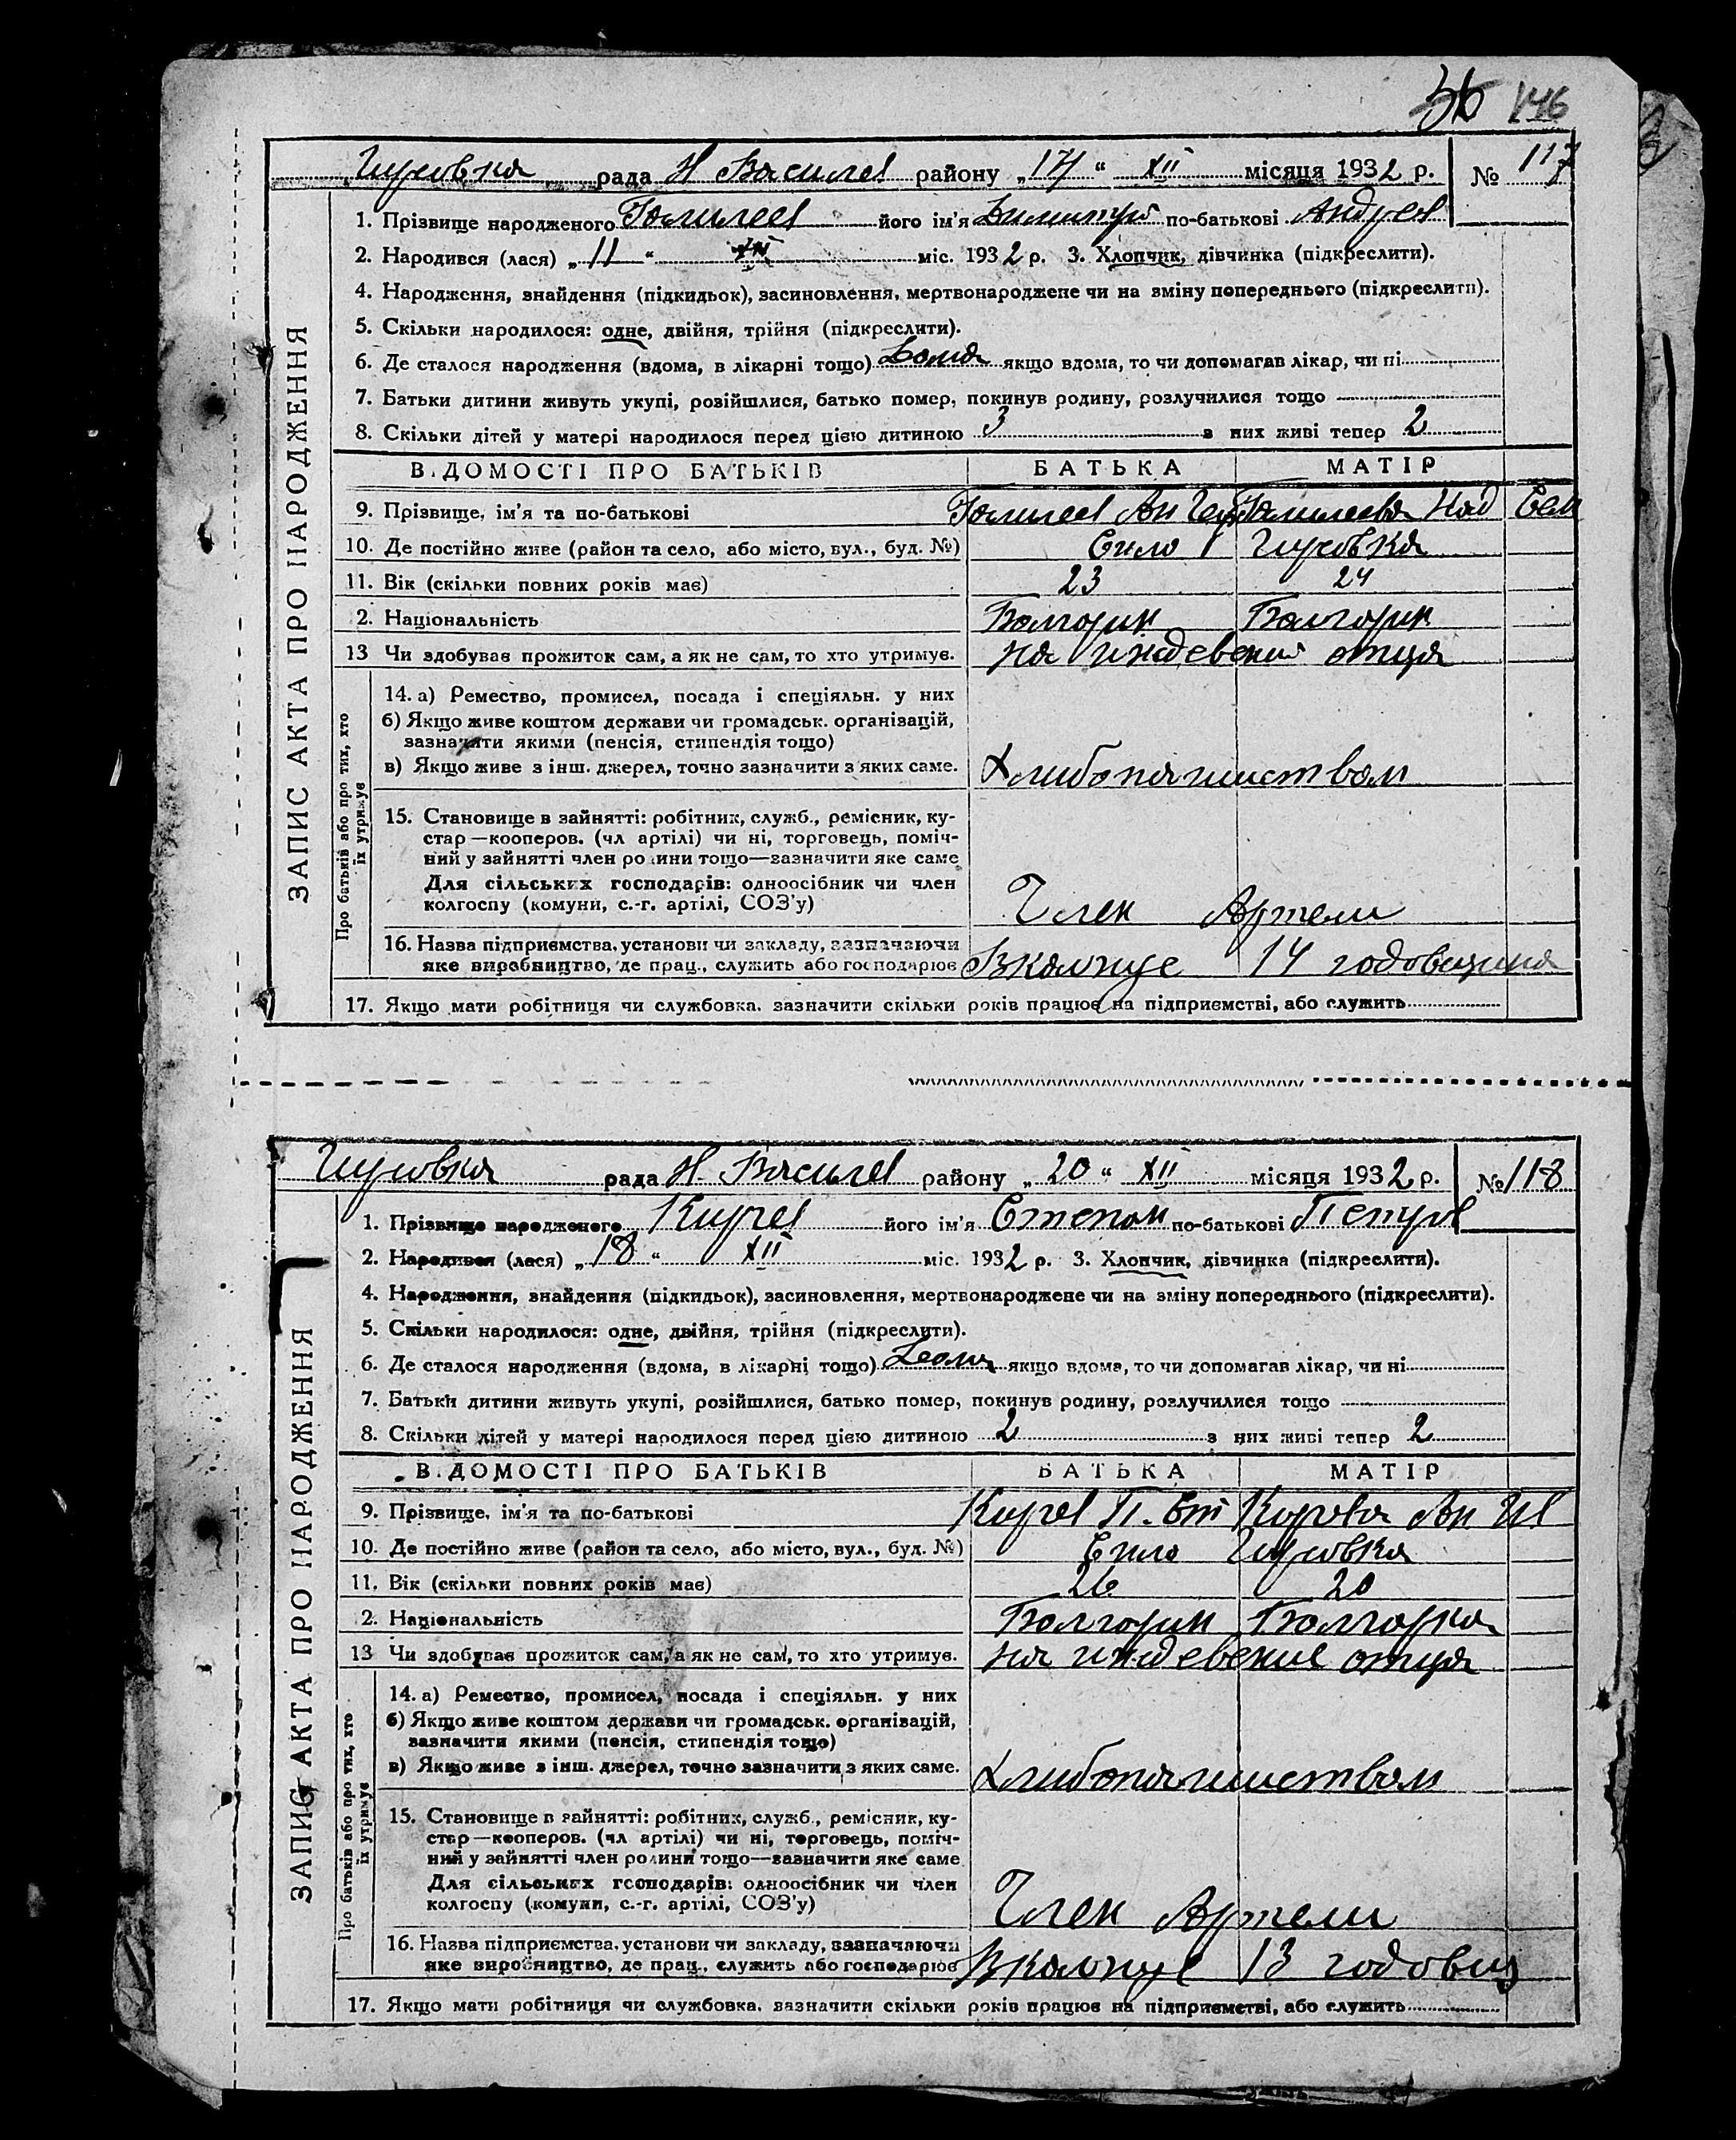 36 146
Гирсовка рада Н Василев району „17“ XII місяця 1932 р. № 117
1. Прізвище народженого його ім'я Димитрй по-батькові Андрев
2. Народився (лася) „11“ XII міс. 1932 р. 3. Хлопчик, дівчинка (підкреслити).
4. Народження, знайдення (підкидьок), засиновлення, мертвонароджене чи на зміну попереднього (підкреслити).
5. Скільки народилося: одне, двійня, трійня (підкреслити).
6. Де сталося народження (вдома, в лікарні тощо) Дома якщо вдома, то чи допомагав лікар, чи ні
7. Батьки дитини живуть укупі, розійшлися, батько помер, покинув родину, розлучилися тощо
8. Скільки дітей у матері народилося перед цією дитиною 3 з них живі тепер 2
ЗАПИС АКТА ПРО НАРОДЖЕННЯ
ВІДОМОСТІ ПРО БАТЬКІВ БАТЬКА МАТІР
9. Прізвище, ім'я та по-батькові Над Сем
10. Де постійно живе (район та село, або місто, вул., буд. №) Сило Гирсовка
11. Вік (скільки повних років має) 23 24
2. Національність Болгарин Болгарин
13 Чи здобував прожиток сам, а як не сам, то хто утримує. на иждевений отця
Про батьків або про тих, хто їх утримує
14. а) Ремество, промисел, посада і спеціяльн. у них
б) Якщо живе коштом держави чи громадськ. організацій,
зазначити якими (пенсія, стипендія тощо)
в) Якщо живе з інш. джерел, точно зазначити з яких саме. Хлибопашиством
15. Становище в зайнятті: робітник, служб., ремісник, ку-
стар—кооперов. (чл артілі) чи ні, торговець, поміч-
ний у зайнятті член родини тощо—зазначити яке саме
Для сільських господарів: одноосібник чи член
колгоспу (комуни, с.-г. артілі, СОЗ'у) Член Артели
16. Назва підприємства, установи чи закладу, зазначаючи
яке виробництво, де прац., служить або господарює 14 годовщина
17. Якщо мати робітниця чи службовка, зазначити скільки років працює на підприємстві, або служить
Гирсовка рада Н. Василев району „20“ XII місяця 1932 р. № 118
1. Прізвище народженого Кирев його ім'я Степан по-батькові Петров
2. Народився (лася) „18“ XII міс. 1932 р. 3. Хлопчик, дівчинка (підкреслити).
4. Народження, знайдення (підкидьок), засиновлення, мертвонароджене чи на зміну попереднього (підкреслити).
5. Скільки народилося: одне, двійня, трійня (підкреслити).
6. Де сталося народження (вдома, в лікарні тощо) Дома якщо вдома, то чи допомагав лікар, чи ні
7. Батьки дитини живуть укупі, розійшлися, батько помер, покинув родину, розлучилися тощо
8. Скільки дітей у матері народилося перед цією дитиною 2 з них живі тепер 2
ЗАПИС АКТА ПРО НАРОДЖЕННЯ
ВІДОМОСТІ ПРО БАТЬКІВ БАТЬКА МАТІР
9. Прізвище, ім'я та по-батькові Кирев П. Ст Ан
10. Де постійно живе (район та село, або місто, вул., буд. №) Сило Гирсовка
11. Вік (скільки повних років має) 26 20
2. Національність Болгарин Болгарка
13 Чи здобував прожиток сам, а як не сам, то хто утримує. на иждевение отця
Про батьків або про тих, хто їх утримує
14. а) Ремество, промисел, посада і спеціяльн. у них
б) Якщо живе коштом держави чи громадськ. організацій,
зазначити якими (пенсія, стипендія тощо)
в) Якщо живе з інш. джерел, точно зазначити з яких саме. Хлибопашиством
15. Становище в зайнятті: робітник, служб., ремісник, ку-
стар—кооперов. (чл артілі) чи ні, торговець, поміч-
ний у зайнятті член родини тощо—зазначити яке саме
Для сільських господарів: одноосібник чи член
колгоспу (комуни, с.-г. артілі, СОЗ'у) Член Артели
16. Назва підприємства, установи чи закладу, зазначаючи
яке виробництво, де прац., служить або господарює 13 годовщ
17. Якщо мати робітниця чи службовка, зазначити скільки років працює на підприємстві, або служить